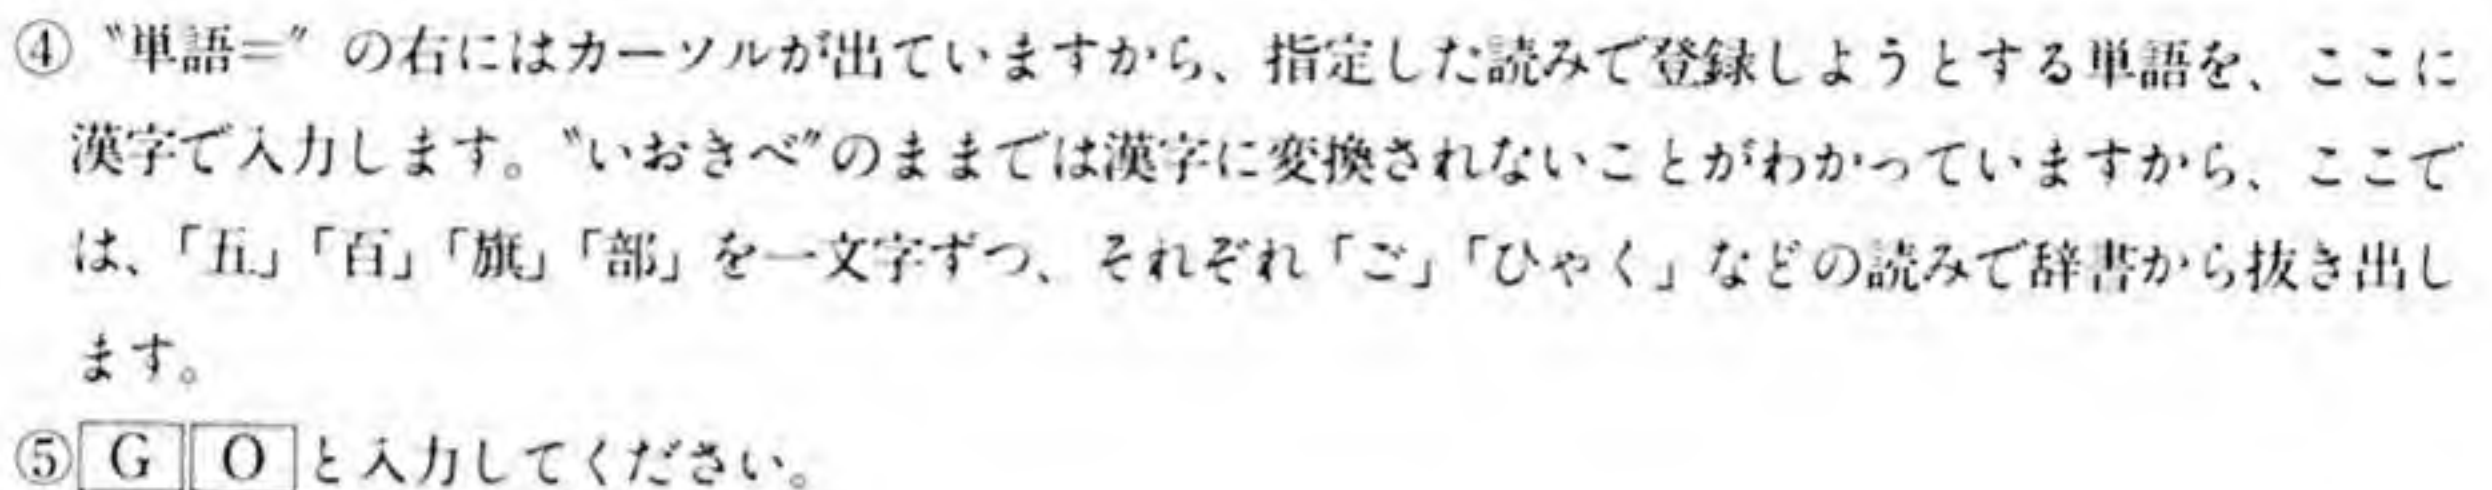 ④〝単語=〟の右にはカーソルが出ていますから、指定した読みで登録しようとする単語を、ここに
漢字で入力します。〝いおきべ〟のままでは漢字に変換されないことがわかっていますから、ここで
は、「五」「百」「旗」「部」を一文字ずつ、それぞれ「ご」「ひゃく」などの読みで辞書から抜き出し
ます。
⑤GOと入力してください。